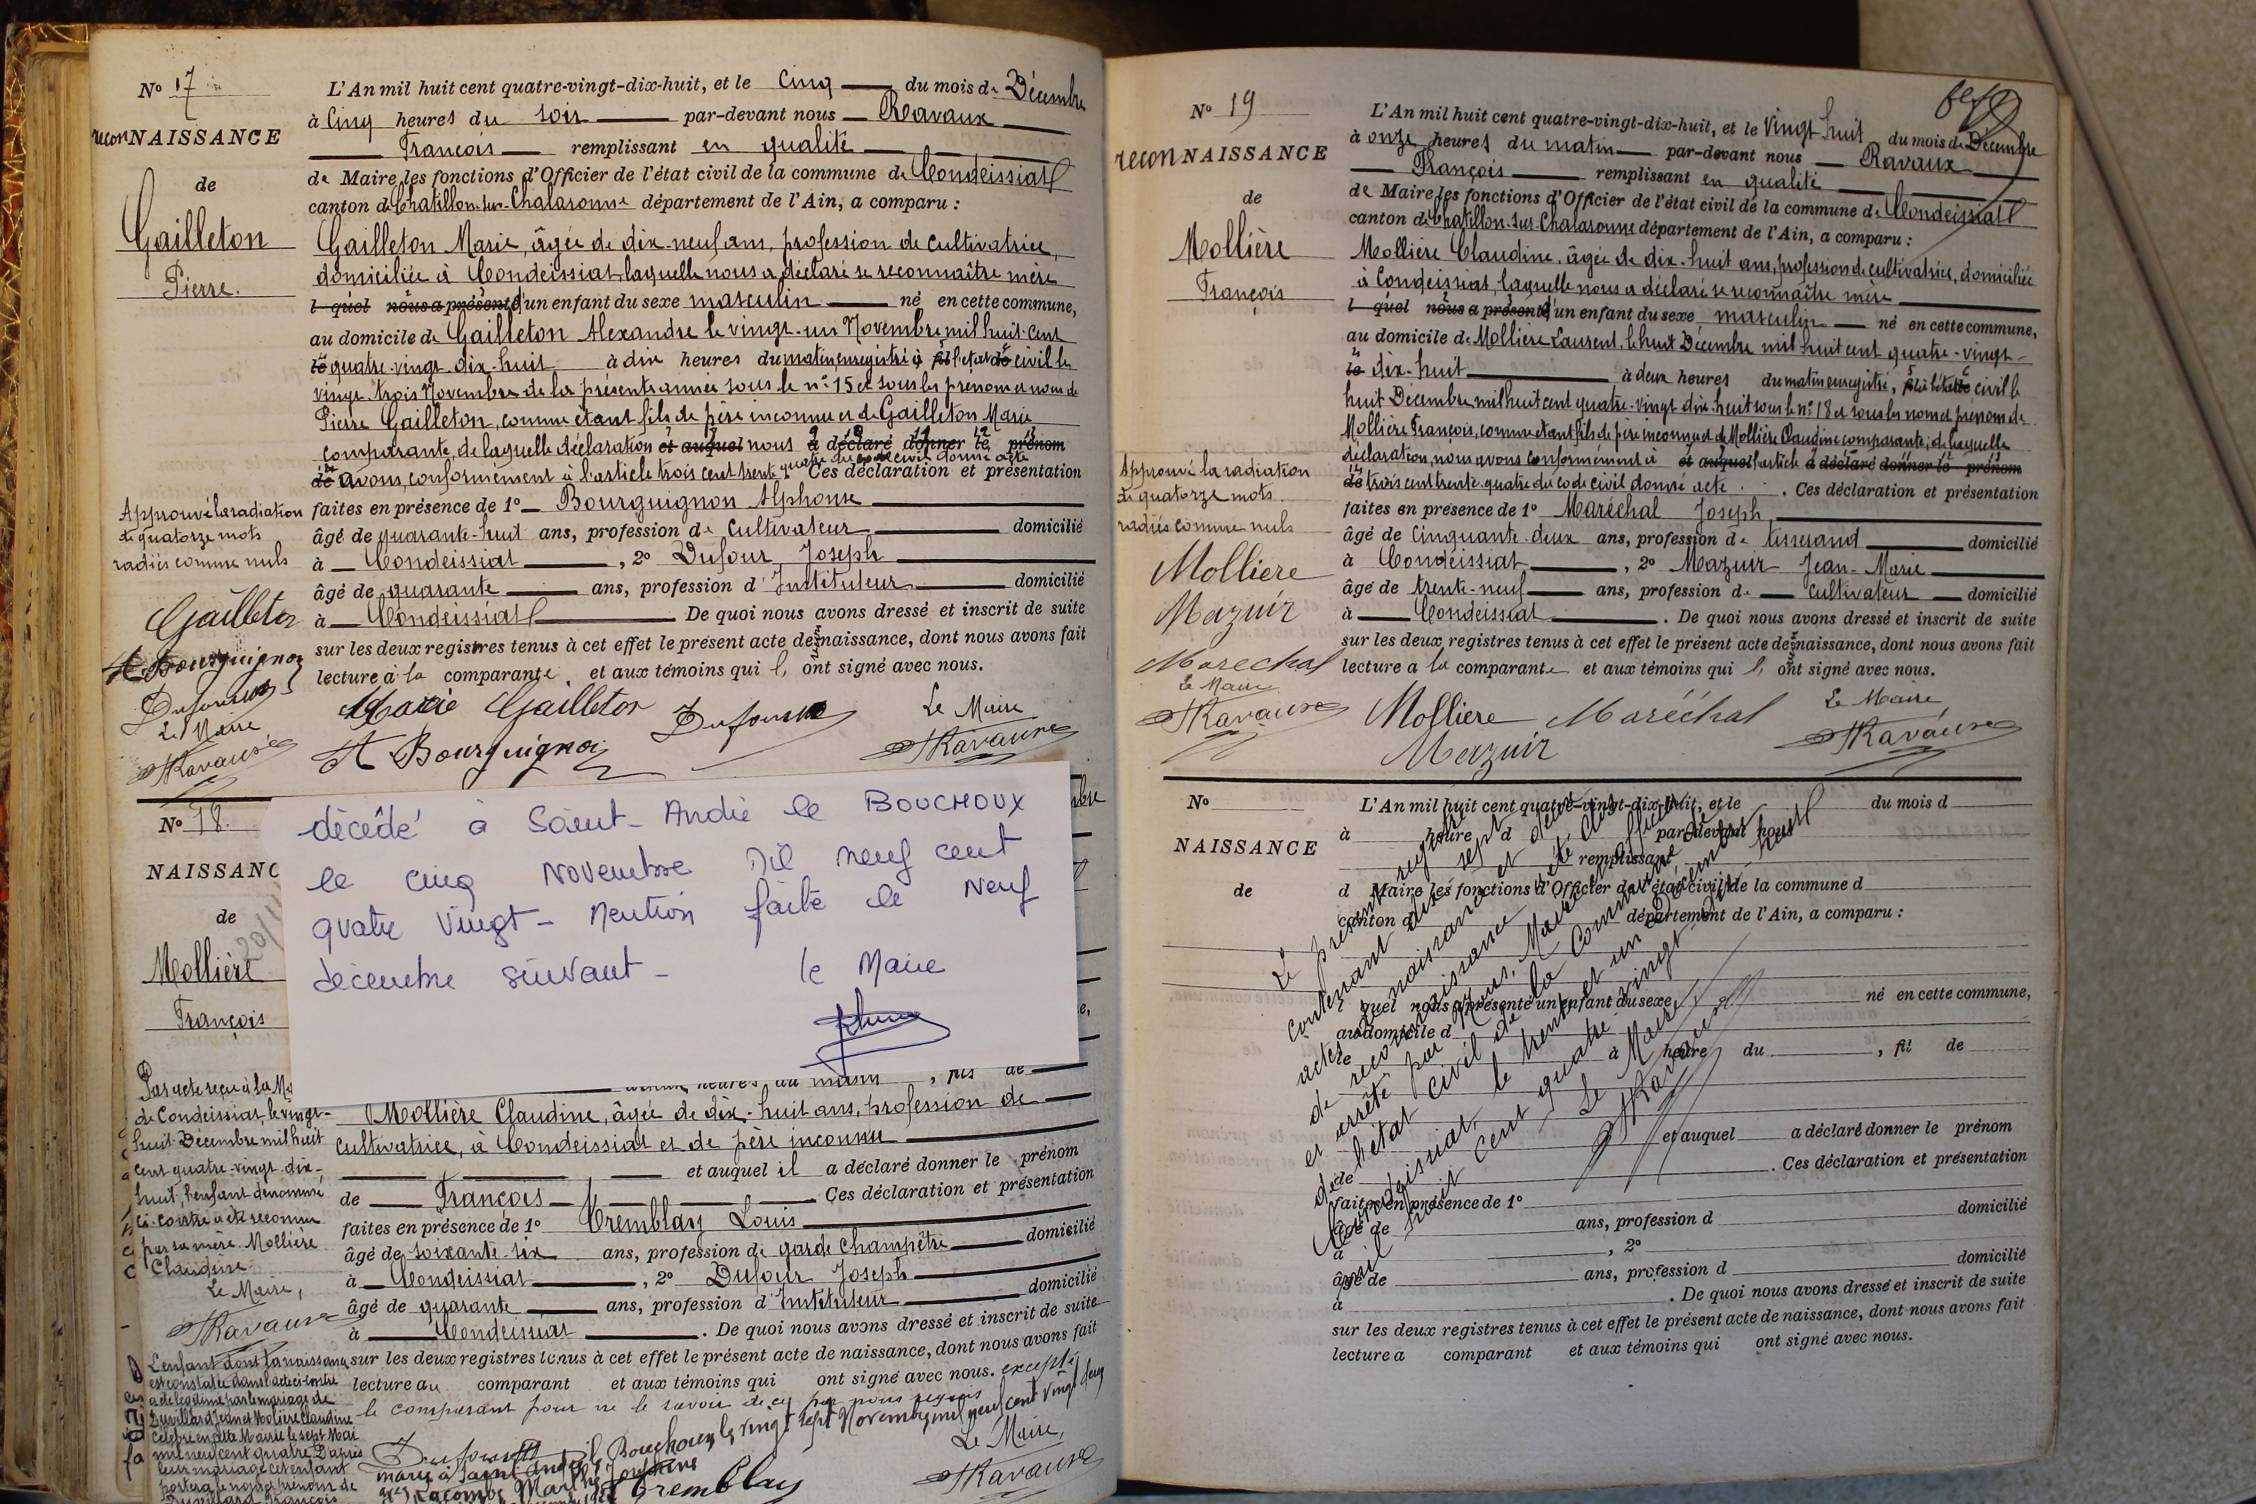 No 17
reconNAISSANCE
de
Gailleton
Pierre.
L'An mil huit cent quatre-vingt-dix-huit, et le Cinq du mois de Décembre
à Cinq heures du soir par-devant nous Ravaux
François remplissant en qualité
de Maire les fonctions d'Officier de l'état civil de la commune de Condeissiat
canton de Chatillon-sur-Chalaronne département de l'Ain, a comparu :
Gailleton Marie, âgée de dix-neuf ans, profession de cultivatrice,
domiciliée à Condeissiat, laquelle nous a déclaré se reconnaître mère
l quel nous a présenté d'un enfant du sexe masculin né en cette commune,
au domicile de Gailleton Alexandre le vingt-un Novembre mil huit cent
le quatre-vingt-dix-huit à dix heures du matin, enregistré à fil l'état de civil le
vingt-trois Novembre de la présente année sous le n° 15 et sous les prénom et nom de
Pierre Gailleton, comme étant fils de père inconnu et de Gailleton Marie
comparante, de laquelle déclaration et auquel nous a déclaré donner le prénom
de avons, conformément à l'article trois cent trente quatre du code civil donné acte Ces déclaration et présentation
faites en présence de 1° Bourguignon Alphonse
âgé de quarante-huit ans, profession de Cultivateur domicilié
à Condeissiat, 2° Dufour Joseph
âgé de quarante ans, profession d'Instituteur domicilié
à Condeissiat De quoi nous avons dressé et inscrit de suite
sur les deux registres tenus à cet effet le présent acte de naissance, dont nous avons fait
lecture à la comparante, et aux témoins qui l, ont signé avec nous.
Approuvé la radiation
de quatorze mots
radiés comme nuls
Gailleton
A Bourguignon
Dufour
Le Maire
Ravaux
Marie Gailleton Dufour Le Maire
A Bourguignon Ravaux
No 18.
NAISSANC
de
Mollière
François
décédé à Saint-André le BOUCHOUX
le cinq Novembre Dil neuf cent
quatre vingt - Mention faite le Neuf
décembre suivant - le Maire
heures du matin, fils de
Mollière Claudine, âgée de dix-huit ans, profession de
cultivatrice, à Condeissiat et de père inconnu
et auquel il a déclaré donner le prénom
de François Ces déclaration et présentation
faites en présence de 1° Tremblay Louis
âgé de soixante-six ans, profession de garde champêtre domicilié
à Condeissiat, 2° Dufour Joseph
âgé de quarante ans, profession d'Instituteur domicilié
à Condeissiat. De quoi nous avons dressé et inscrit de suite
sur les deux registres tenus à cet effet le présent acte de naissance, dont nous avons fait
lecture au comparant et aux témoins qui ont signé avec nous. excepté
le comparant pour ne le savoir de ce par nous requis
Par acte reçu à la M
de Condeissiat, le vingt-
huit Décembre mil huit
cent quatre-vingt-dix-
huit, l'enfant dénommé
ci-contre a été reconnu
par sa mère Mollière
Claudine.
Le Maire,
Ravaux
L'enfant dont la naissance
est constatée dans l'acte ci-contre
a été légitimé par le mariage de
Duvillard Jean et Molière Claudine
célébré en cette Mairie le sept Mai
mil neuf cent quatre. D'après
leur mariage cet enfant
portera le nom et prénom de
Duvillard François
marié à Saint André le Bouchoux, le vingt sept Novembre mil neuf cent vingt deux
Dufour Le Maire,
Tremblay Ravaux
No 19
reconNAISSANCE
de
Mollière
François
L'An mil huit cent quatre-vingt-dix-huit, et le Vingt huit du mois de Décembre
à onze heures du matin par-devant nous Ravaux
François remplissant en qualité
de Maire les fonctions d'Officier de l'état civil de la commune de Condeissiat
canton de Chatillon-sur-Chalaronne département de l'Ain, a comparu :
Mollière Claudine, âgée de dix-huit ans, profession de cultivatrice, domiciliée
à Condeissiat, laquelle nous a déclaré se reconnaître mère
l quel nous a présenté d'un enfant du sexe masculin né en cette commune,
au domicile de Mollière Laurent, le huit Décembre mil huit cent quatre-vingt-
le dix-huit à deux heures du matin enregistré, fil à l'état de civil le
huit Décembre mil huit cent quatre-vingt dix-huit sous le n° 18 et sous les nom et prénom de
Mollière François, comme étant fils de père inconnu et de Mollière Claudine comparante; de laquelle
déclaration, nous avons conformément à et auquel l'article a déclaré donner le prénom
de trois cent trente-quatre du code civil donné acte. Ces déclaration et présentation
faites en présence de 1° Maréchal Joseph
âgé de Cinquante-deux ans, profession de tisserand domicilié
à Condeissiat, 2° Mazuir Jean-Marie
âgé de trente-neuf ans, profession de cultivateur domicilié
à Condeissiat. De quoi nous avons dressé et inscrit de suite
sur les deux registres tenus à cet effet le présent acte de naissance, dont nous avons fait
lecture a la comparante et aux témoins qui l, ont signé avec nous.
Approuvé la radiation
de quatorze mots
radiés comme nuls
Molliere
Mazuir
Maréchal
Le Maire
Ravaux
Molliere Maréchal Le Maire
Mazuir Ravaux
No
NAISSANCE
de
L'An mil huit cent quatre-vingt-dix-huit, et le du mois d
à heure d par-devant nous
remplissant
d Maire les fonctions d'Officier de l'état civil de la commune d
canton d département de l'Ain, a comparu :
quel nous a présenté un enfant du sexe né en cette commune,
au domicile d
le à heure du, fil de
et auquel a déclaré donner le prénom
de. Ces déclaration et présentation
faites en présence de 1°
âgé de ans, profession d domicilié
à, 2°
âgé de ans, profession d domicilié
à. De quoi nous avons dressé et inscrit de suite
sur les deux registres tenus à cet effet le présent acte de naissance, dont nous avons fait
lecture a comparant et aux témoins qui ont signé avec nous.
Le présent registre
contenant dix sept
actes de naissance et deux
de reconnaissance a été clos
et arrêté par Nous, Maire officier
de l'état civil de la Commune de
Condeissiat, le trente et un Décembre
mil huit cent quatre vingt dix huit
Le Maire
Ravaux